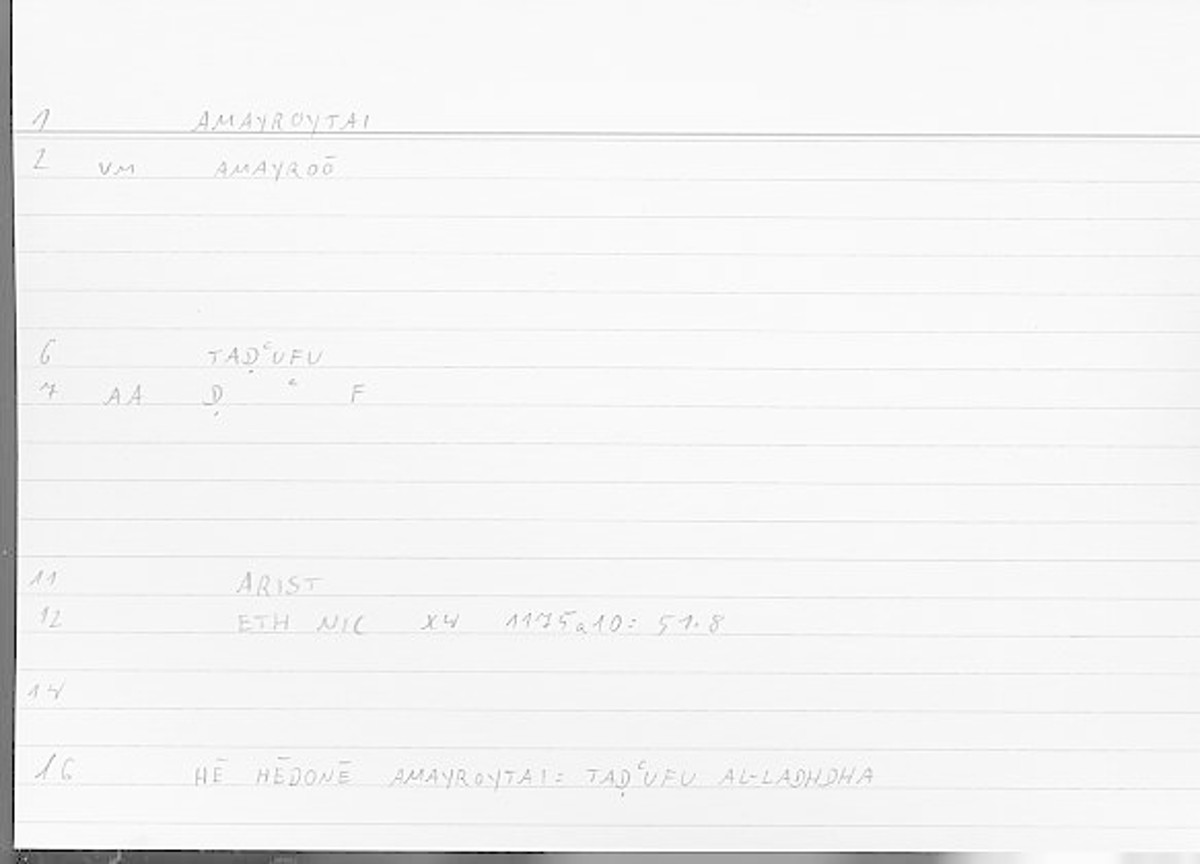 1 AMAYROYTAI
2 VM AMAYROŌ
6 TAḌʿUFU
7 AA Ḍ ʿ F
11 ARIST
12 ETH NIC X4 1175a10: 51.8
14
16 HĒ HĒDONĒ AMAYROYTAI: TAḌʿUFU AL-LADHDHA